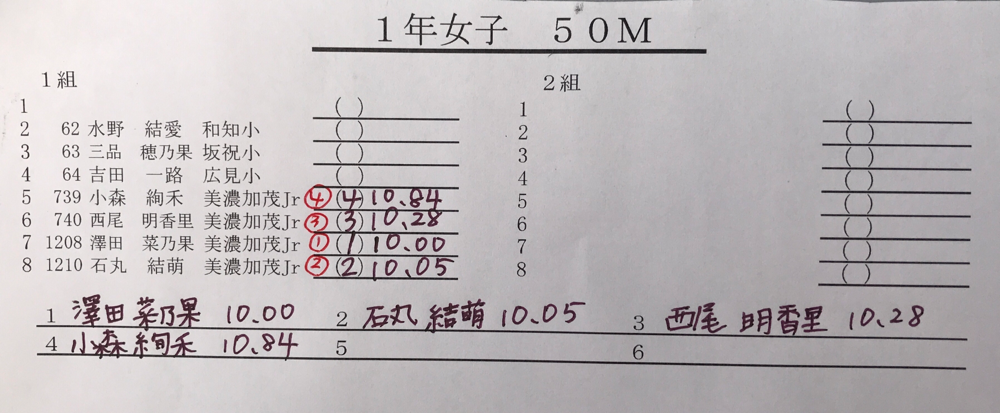 １年女子　５０Ｍ
１組
1 ( )
2 62 水野　結愛　和知小 ( )
3 63 三品　穂乃果 坂祝小 ( )
4 64 吉田　一路　広見小 ( )
5 739 小森　絢禾　美濃加茂Jr ④ (4) 10.84
6 740 西尾　明香里 美濃加茂Jr ③ (3) 10.28
7 1208 澤田　菜乃果 美濃加茂Jr ① (1) 10.00
8 1210 石丸　結萌　美濃加茂Jr ② (2) 10.05
２組
1 ( )
2 ( )
3 ( )
4 ( )
5 ( )
6 ( )
7 ( )
8 ( )
1 澤田 菜乃果 10.00 2 石丸 結萌 10.05 3 西尾 明香里 10.28
4 小森 絢禾 10.84 5 6